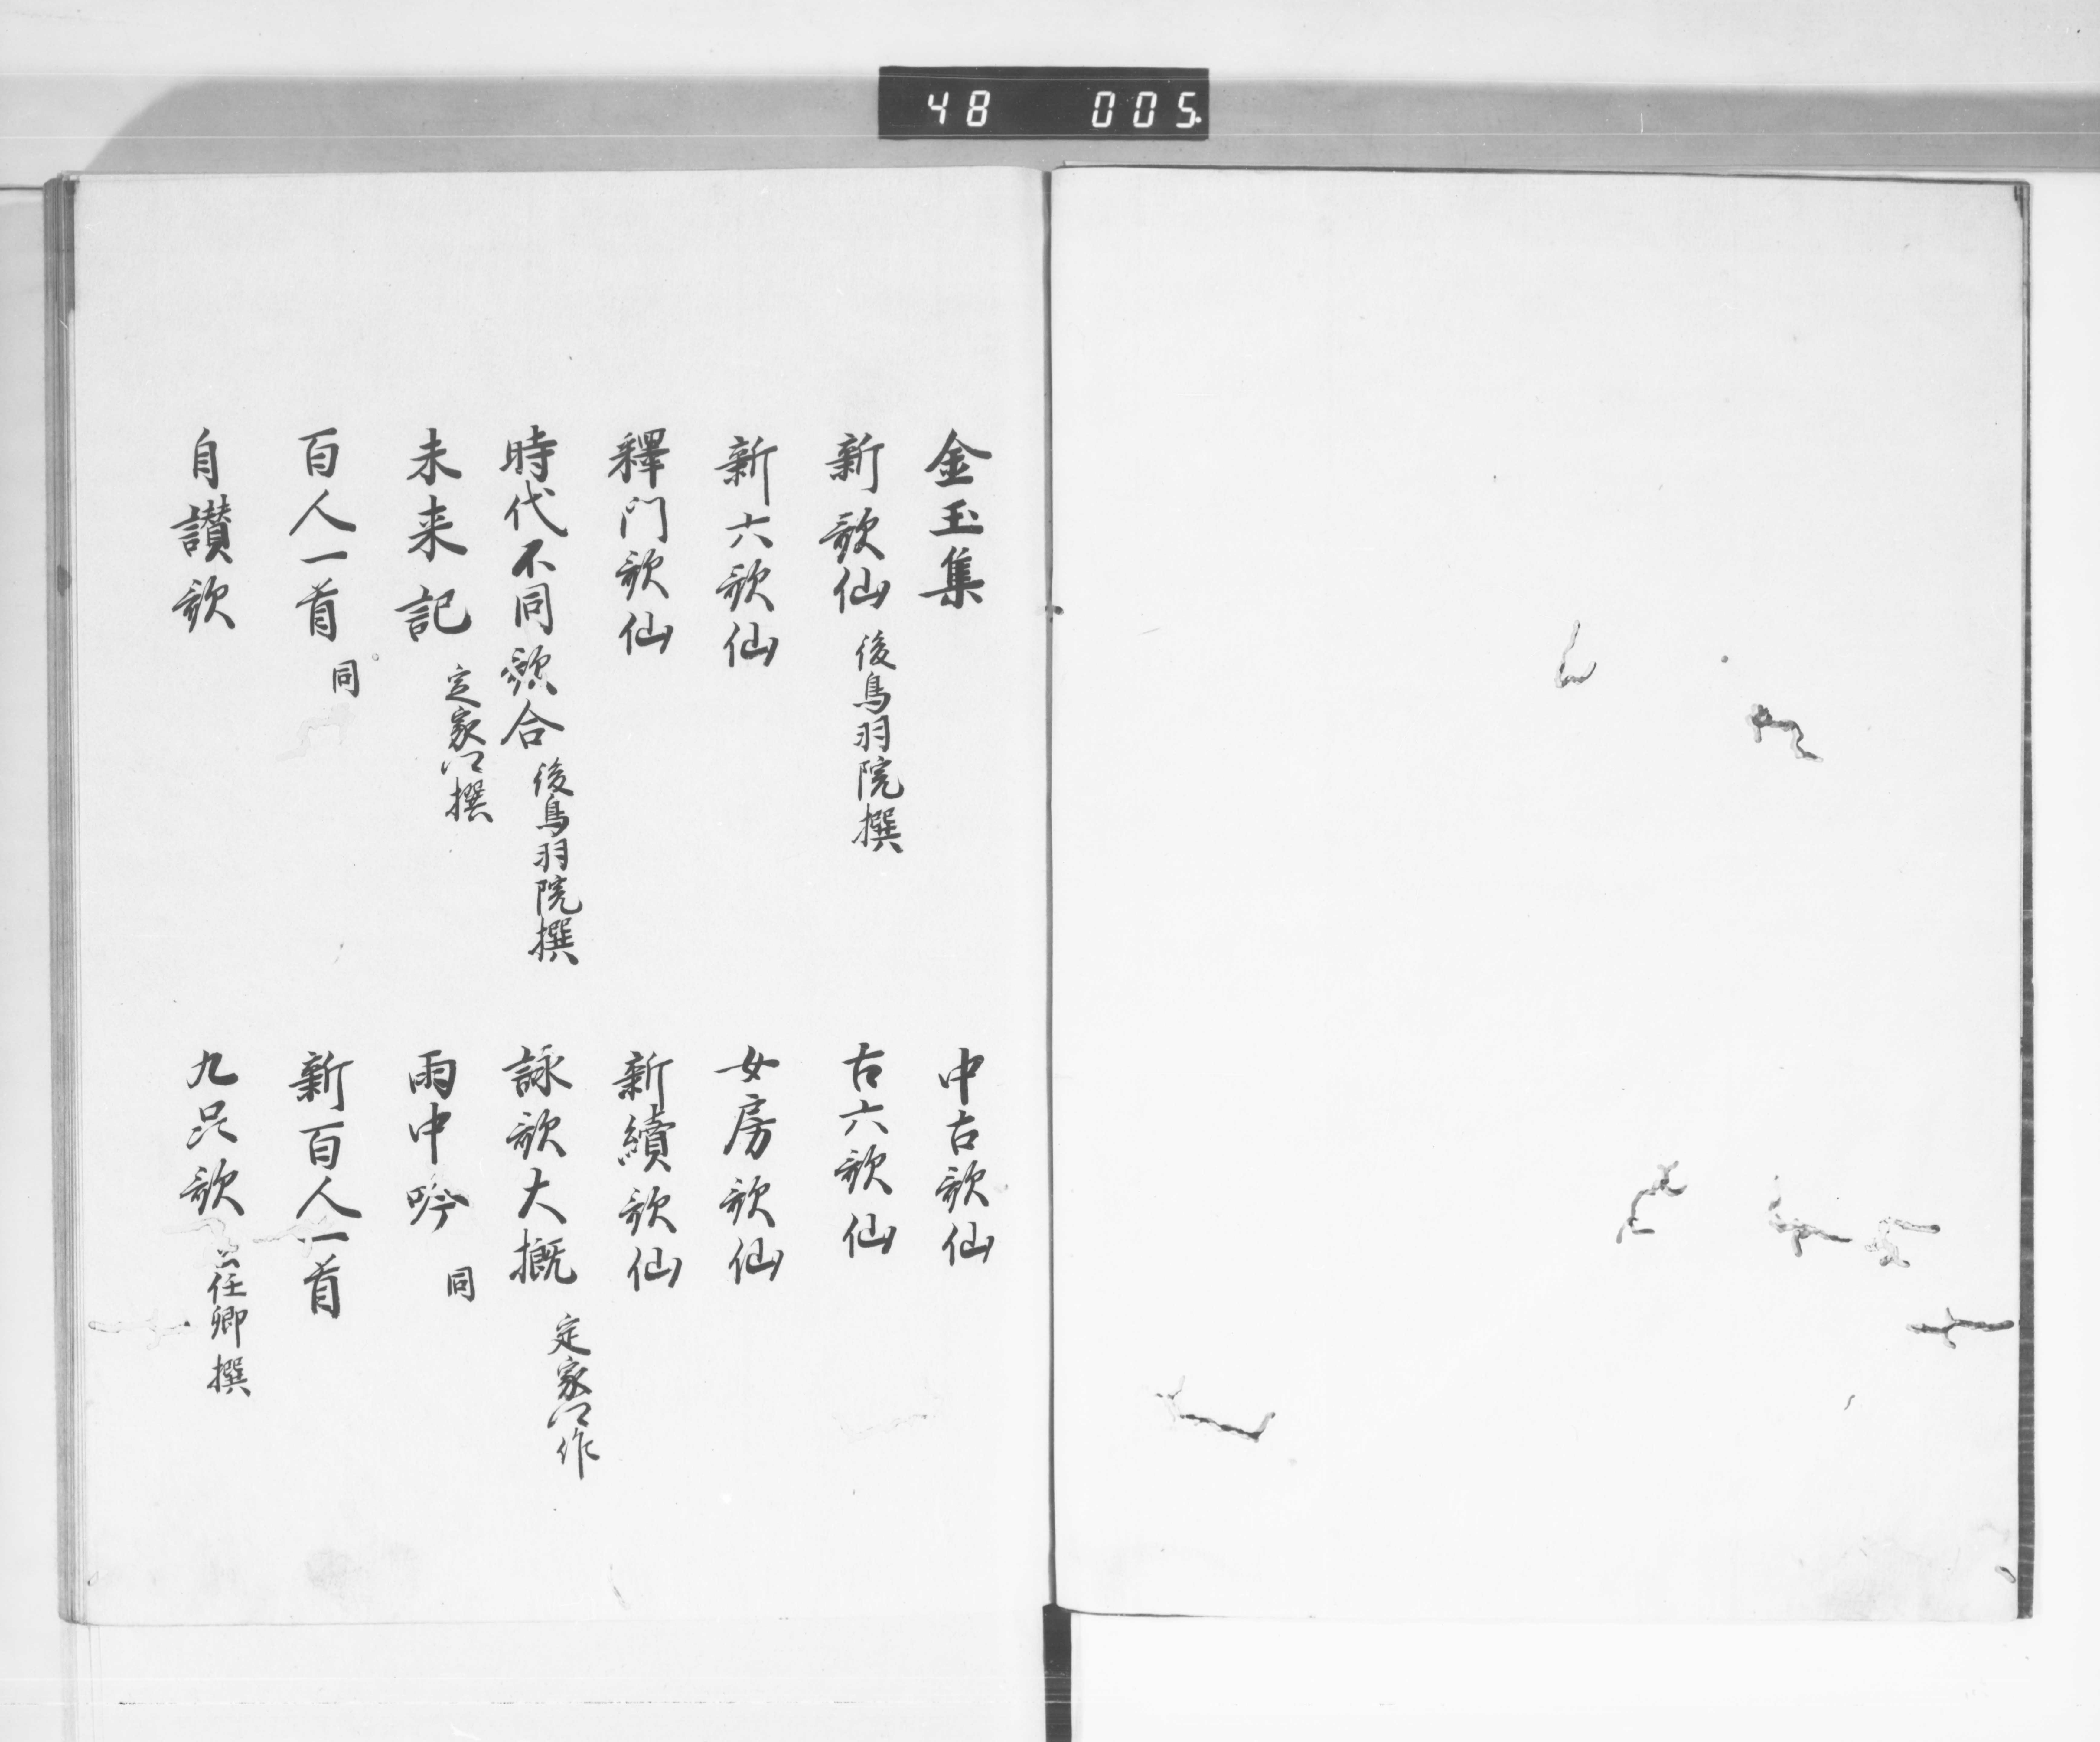 48 005
金玉集 中古歌仙
新歌仙 後鳥羽院撰 古六歌仙
新六歌仙 女房歌仙
釋門歌仙 新續歌仙
時代不同歌合 後鳥羽院撰 詠歌大概 定家卿作
未来記 定家卿撰 雨中吟 同
百人一首 同 新百人一首
自讃歌 九品歌 公任卿撰